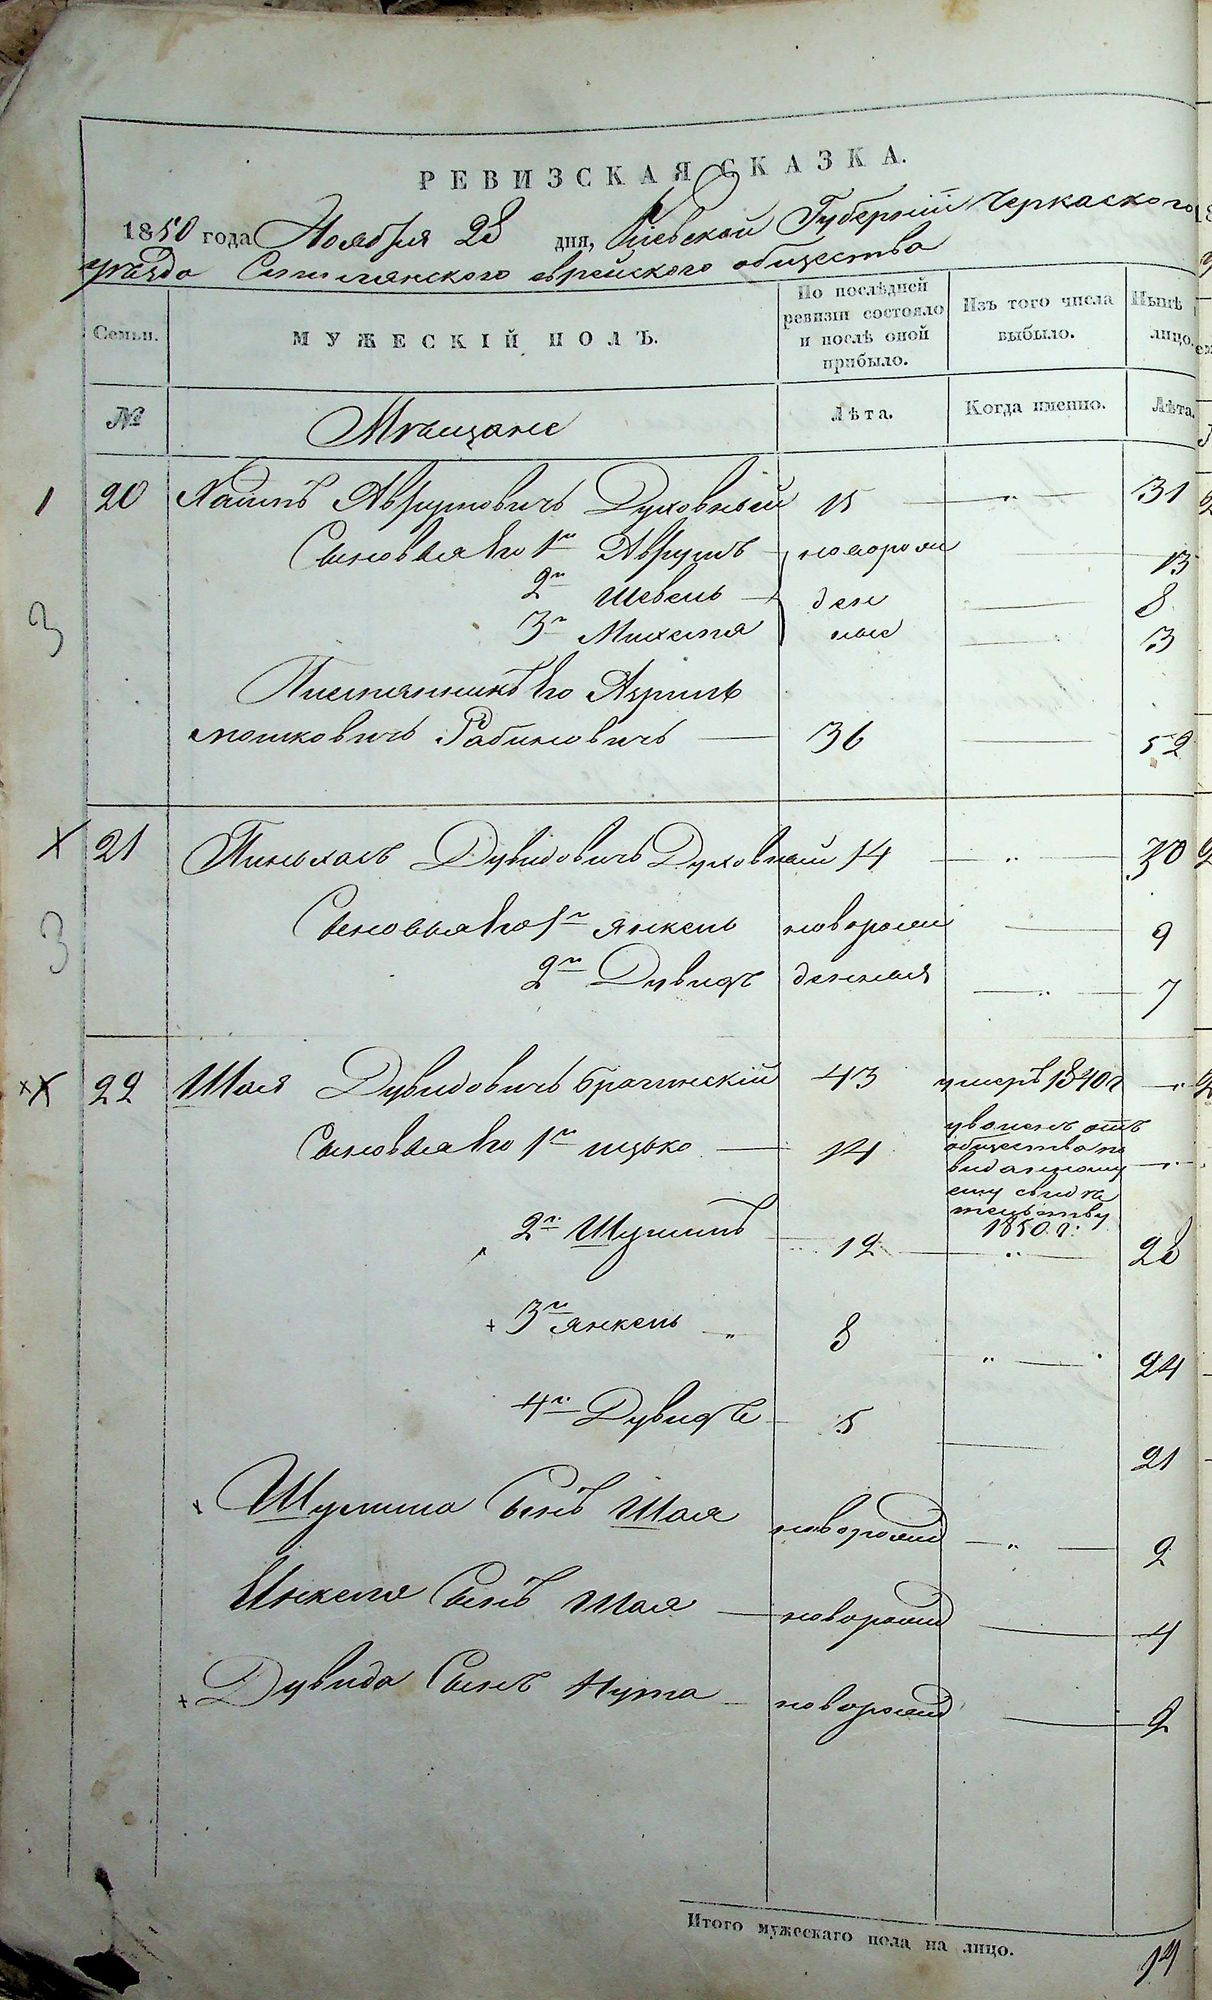 РЕВИЗСКАЯ СКАЗКА.
1850 года Ноября 28 дня, Киевской Губерніи Черкаского
уезда Смилянского еврейского общества
Семьи. МУЖЕСКІЙ ПОЛЪ. По послѣдней ревизіи состояло и послѣ оной прибыло. Изъ того числа выбыло. Нынѣ лицо.
№ Мѣщане Лѣта. Когда именно. Лѣта.
1 20 Хаимъ Аврумовичъ Духовный 15 — " — 31
Сыновья Его 1й Аврумъ новорож — 13
2й Шевель — ден — 8
3
3й Михеля ные — 3
Племянникъ Его Азриль
мошковичъ Рабиновичъ — 36 — 52
X 21 Пинхасъ Дувидовичъ Духовный 14 — " — 30
Сыновья Его 1й янкель новорож — 9
3
2й Дувидъ денныя — " — 7
XX 22 Шая Дувидовичъ брагинскій 43 умеръ 1840 г — " —
Сыновья Его 1й ицько — 14 уволенъ отъ
общества по
виданному — " —
ему свиде
тельству
1850 г.
2й Шулимъ 12 — " — 28
+ 3й янкель " 8 " — 24
4й Дувидъ — 15 — 21
+ Шулима Сынъ Шая новорожд — " — 2
Янкеля Сынъ Шая — новорожд — 4
+ Дувида Сынъ Нута — новорожд — 2
Итого мужескаго пола на лицо. 14